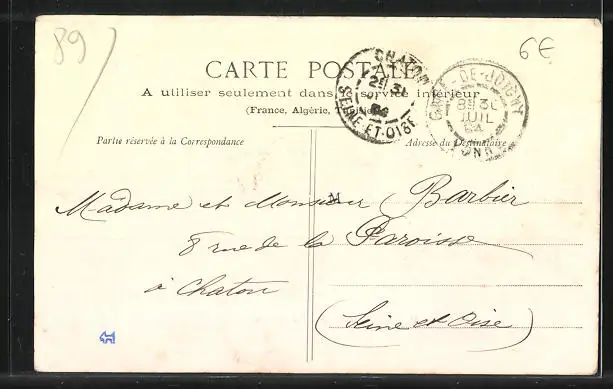 89
6€
CARTE POSTALE
A utiliser seulement dans le service intérieur
(France, Algérie,
CHATOU
2E 31
04
SEINE-ET-OISE
GARE-DE-JOIGNY
8E 30
JUIL
04
YONNE
Partie réservée à la Correspondance
Adresse du Destinataire
Madame et Monsieur Barbier
8 rue de la Paroisse
à Chatou
(Seine et Oise)